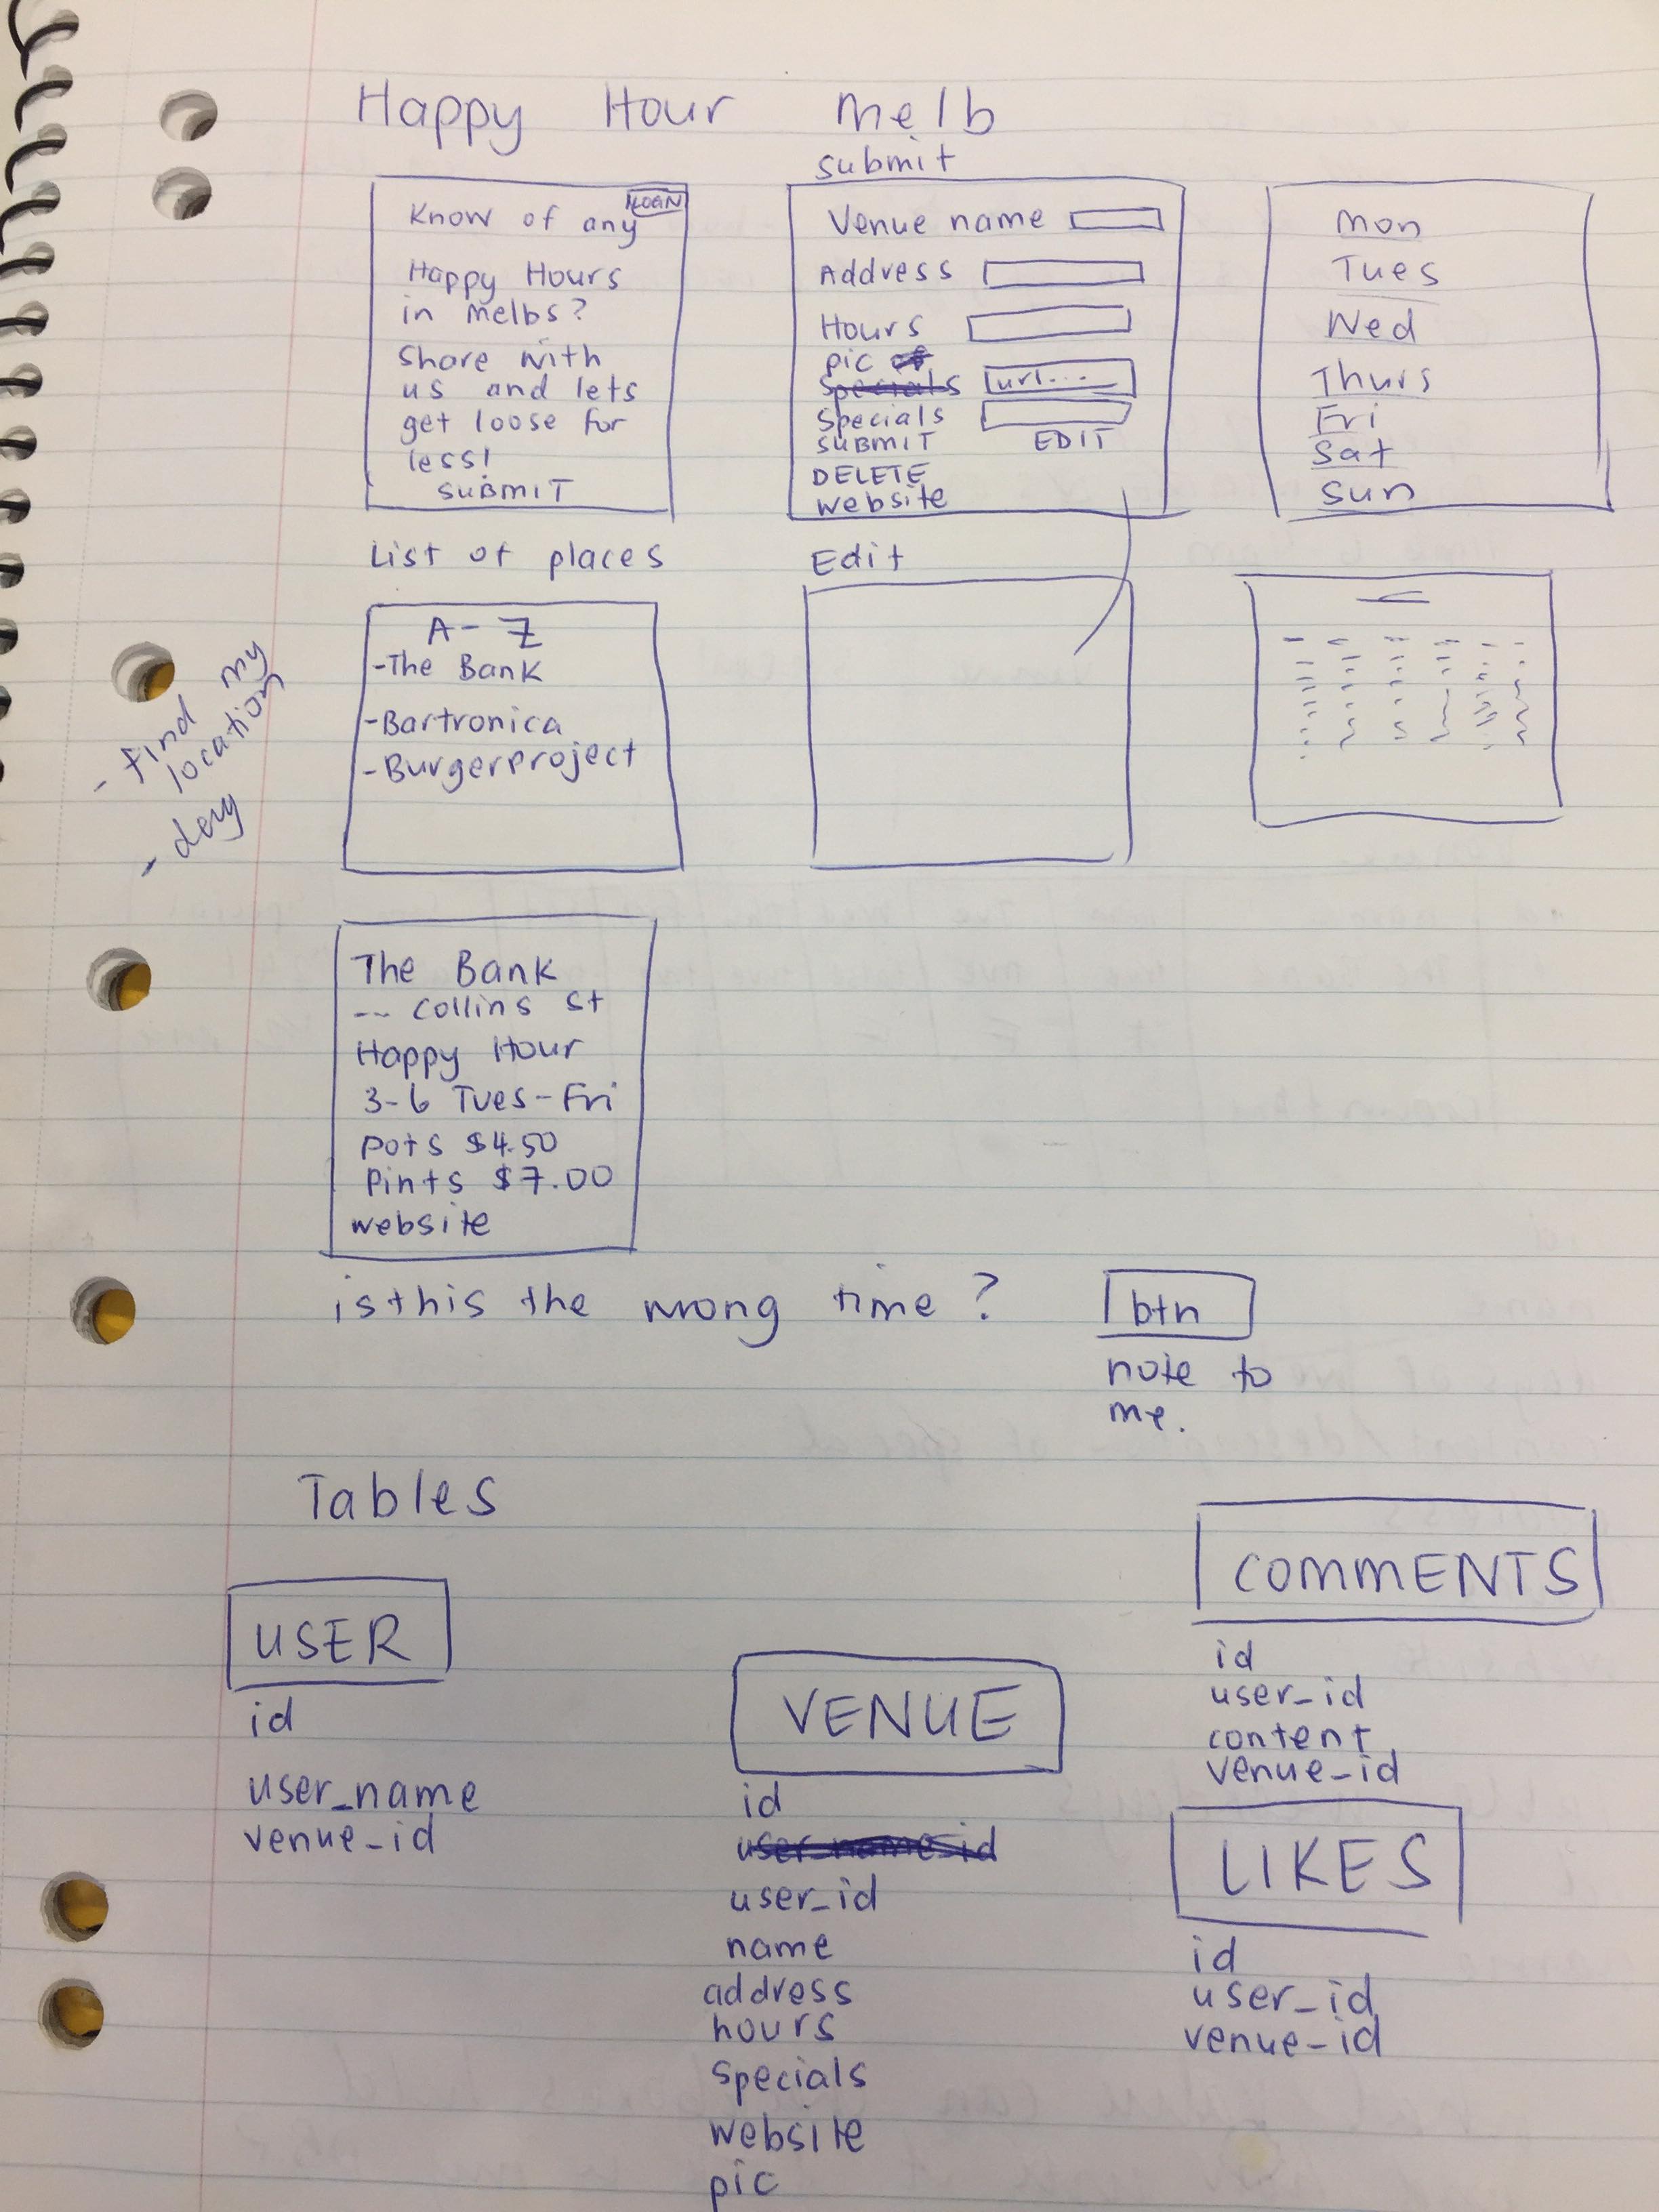 Happy Hour Melb
LOGIN
Know of any
Happy Hours
in melbs?
Share with
us and lets
get loose for
less!
SUBMIT
submit
Venue name
Address
Hours
pic
url...
Specials
SUBMIT
EDIT
DELETE
website
Mon
Tues
Wed
Thurs
Fri
Sat
Sun
List of places
A-Z
-The Bank
-Bartronica
-Burgerproject
- find my
location
- day
Edit
The Bank
-- Collins St
Happy Hour
3-6 Tues-Fri
pots $4.50
Pints $7.00
website
is this the wrong time?
btn
note to
me.
Tables
USER
id
user_name
venue_id
VENUE
id
user_name_id
user_id
name
address
hours
specials
website
pic
COMMENTS
id
user_id
content
venue_id
LIKES
id
user_id
venue_id